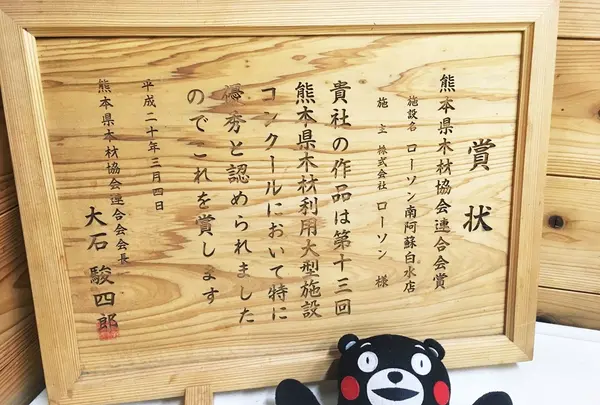 賞状
熊本県木材協会連合会賞
施設名 ローソン南阿蘇白水店
施主 株式会社 ローソン 様
貴社の作品は第十三回
熊本県木材利用大型施設
コンクールにおいて特に
優秀と認められました
のでこれを賞します
平成二十年三月四日
熊本県木材協会連合会会長
大石 駿四郎